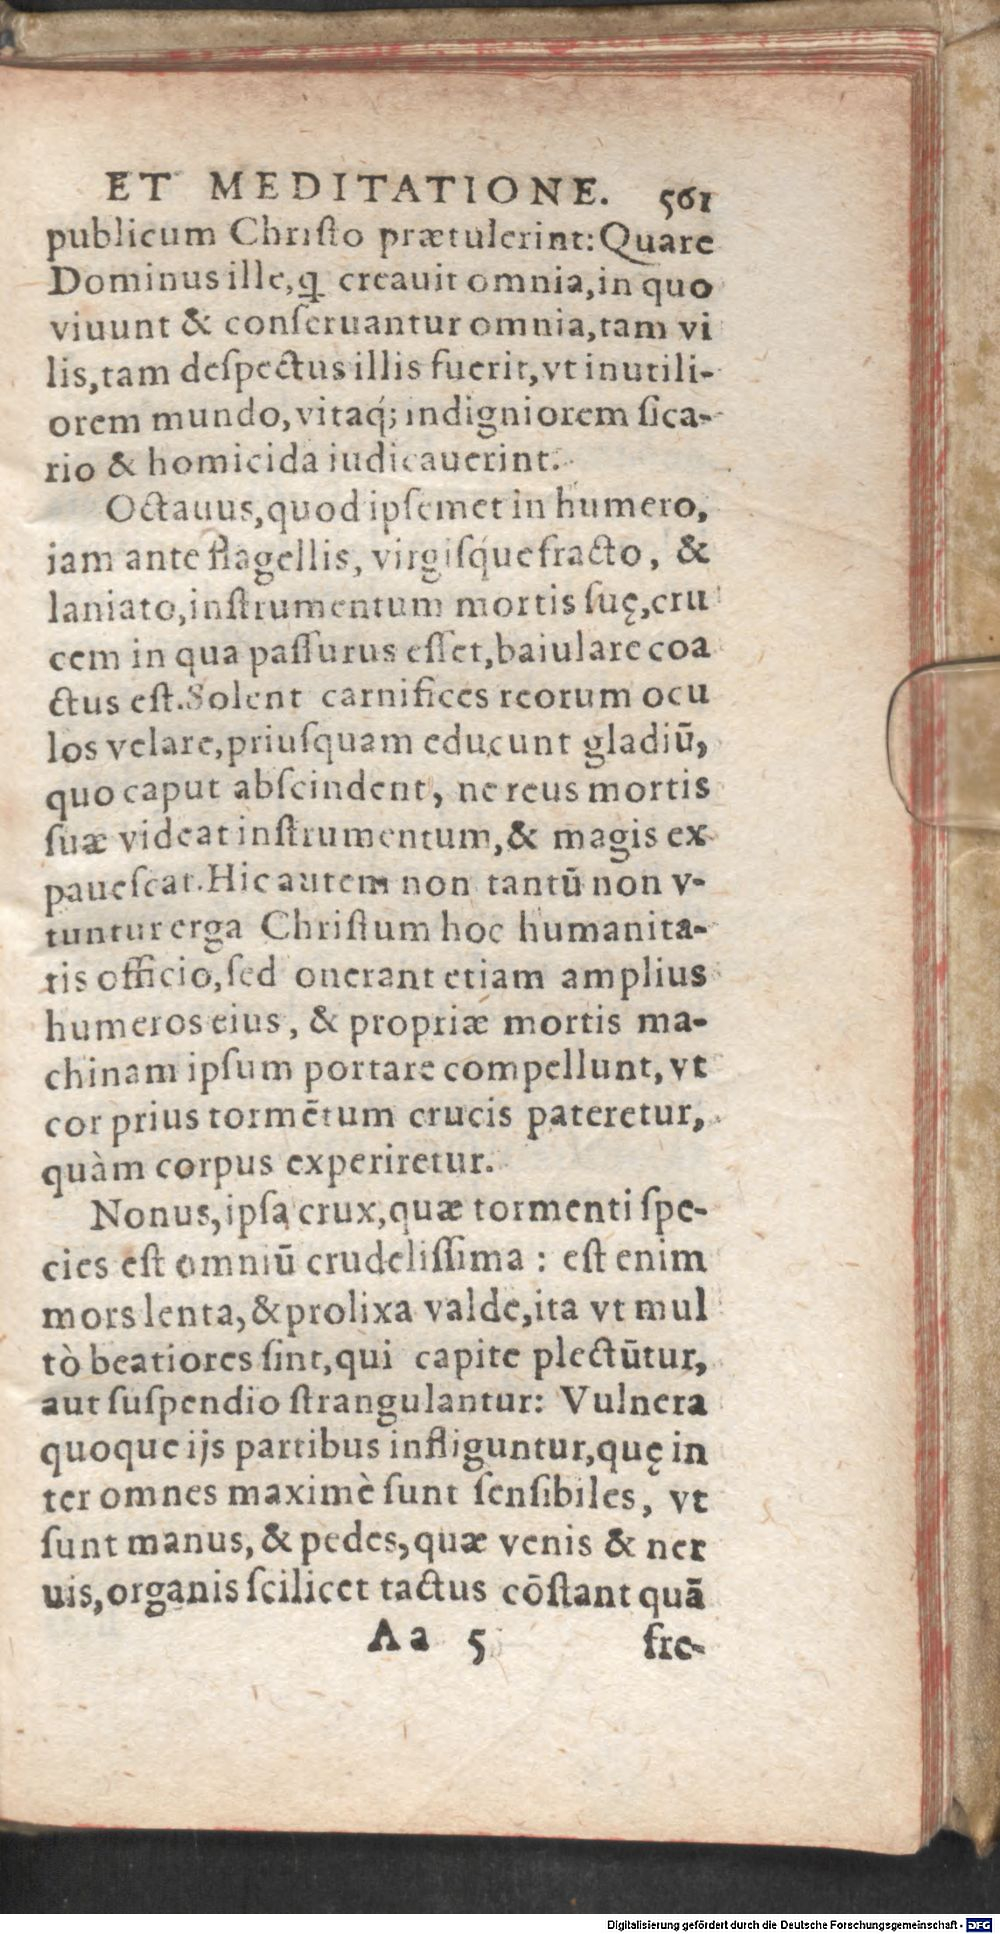 ET MEDITATIONE. 561
publicum Chriſto prætulerint: Quare
Dominus ille, ꝗ creauit omnia, in quo
viuunt & conſeruantur omnia, tam vi
lis, tam deſpectus illis fuerit, vt inutili-
orem mundo, vitaq́; indigniorem ſica-
rio & homicida iudicauerint.
Octauus, quod ipſemet in humero,
iam ante flagellis, virgiſq́ue fracto, &
laniato, inſtrumentum mortis ſuę, cru
cem in qua paſſurus eſſet, baiulare coa
ctus eſt. Solent carnifices reorum ocu
los velare, priuſquam educunt gladiū,
quo caput abſcindent, ne reus mortis
ſuæ videat inſtrumentum, & magis ex
paueſcat. Hic autem non tantū non v-
tuntur erga Chriſtum hoc humanita-
tis officio, ſed onerant etiam amplius
humeros eius, & propriæ mortis ma-
chinam ipſum portare compellunt, vt
cor prius tormētum crucis pateretur,
quàm corpus experiretur.
Nonus, ipſa crux, quæ tormenti ſpe-
cies eſt omniū crudeliſſima : eſt enim
mors lenta, & prolixa valde, ita vt mul
tò beatiores ſint, qui capite plectūtur,
aut ſuſpendio ſtrangulantur: Vulnera
quoque ijs partibus infliguntur, quę in
ter omnes maximè ſunt ſenſibiles, vt
ſunt manus, & pedes, quæ venis & ner
uis, organis ſcilicet tactus cōſtant quā
Aa 5 fre-
Digitalisierung gefördert durch die Deutsche Forschungsgemeinschaft - DFG